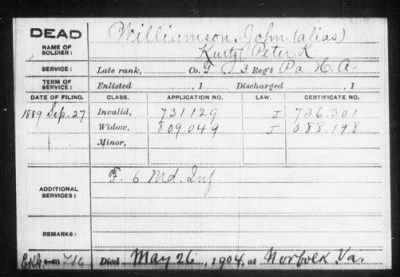 DEAD
Williamson, John (alias)
NAME OF SOLDIER:
Kurtz Peter K
SERVICE: Late rank, Co. F, 3 Reg't Pa H. A.
TERM OF SERVICE: Enlisted , 1 Discharged , 1
DATE OF FILING. CLASS. APPLICATION NO. LAW. CERTIFICATE NO.
1889 Sep. 27 Invalid, 731129 J 736.201
Widow, 809049 J 688.198
Minor,
ADDITIONAL SERVICES: F. 6 Md. Inf
REMARKS:
Died May 26, 1904, at Norfolk Va.